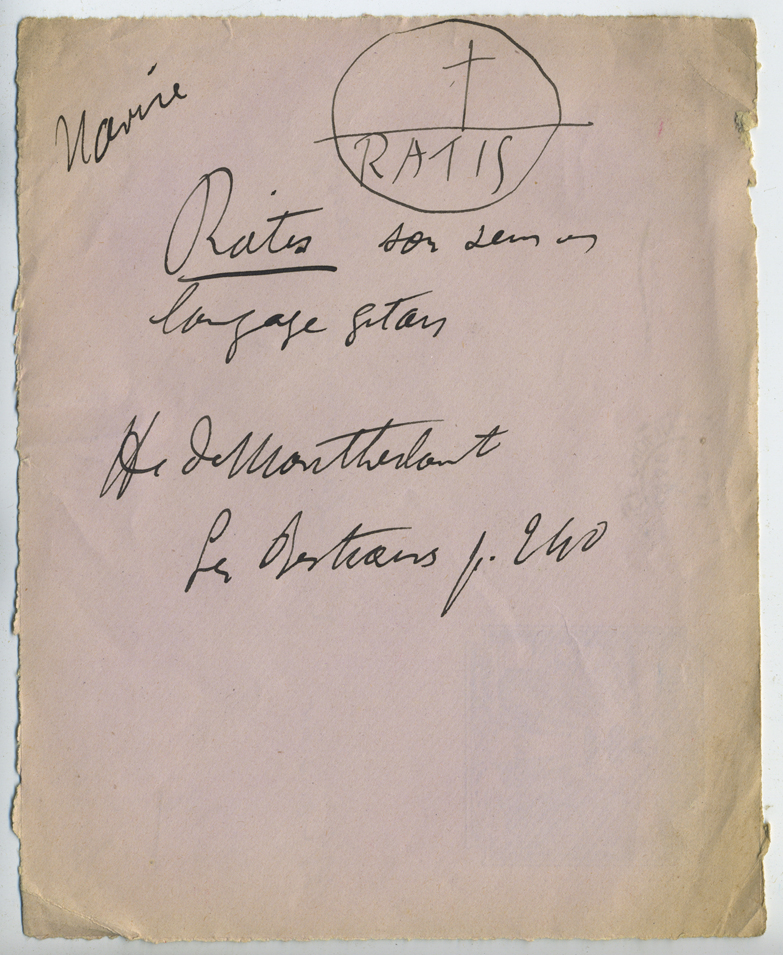 Navire
RATIS
Ratis son sens en
langage gitan
H. de Montherlant
Les Bestiaires p. 240